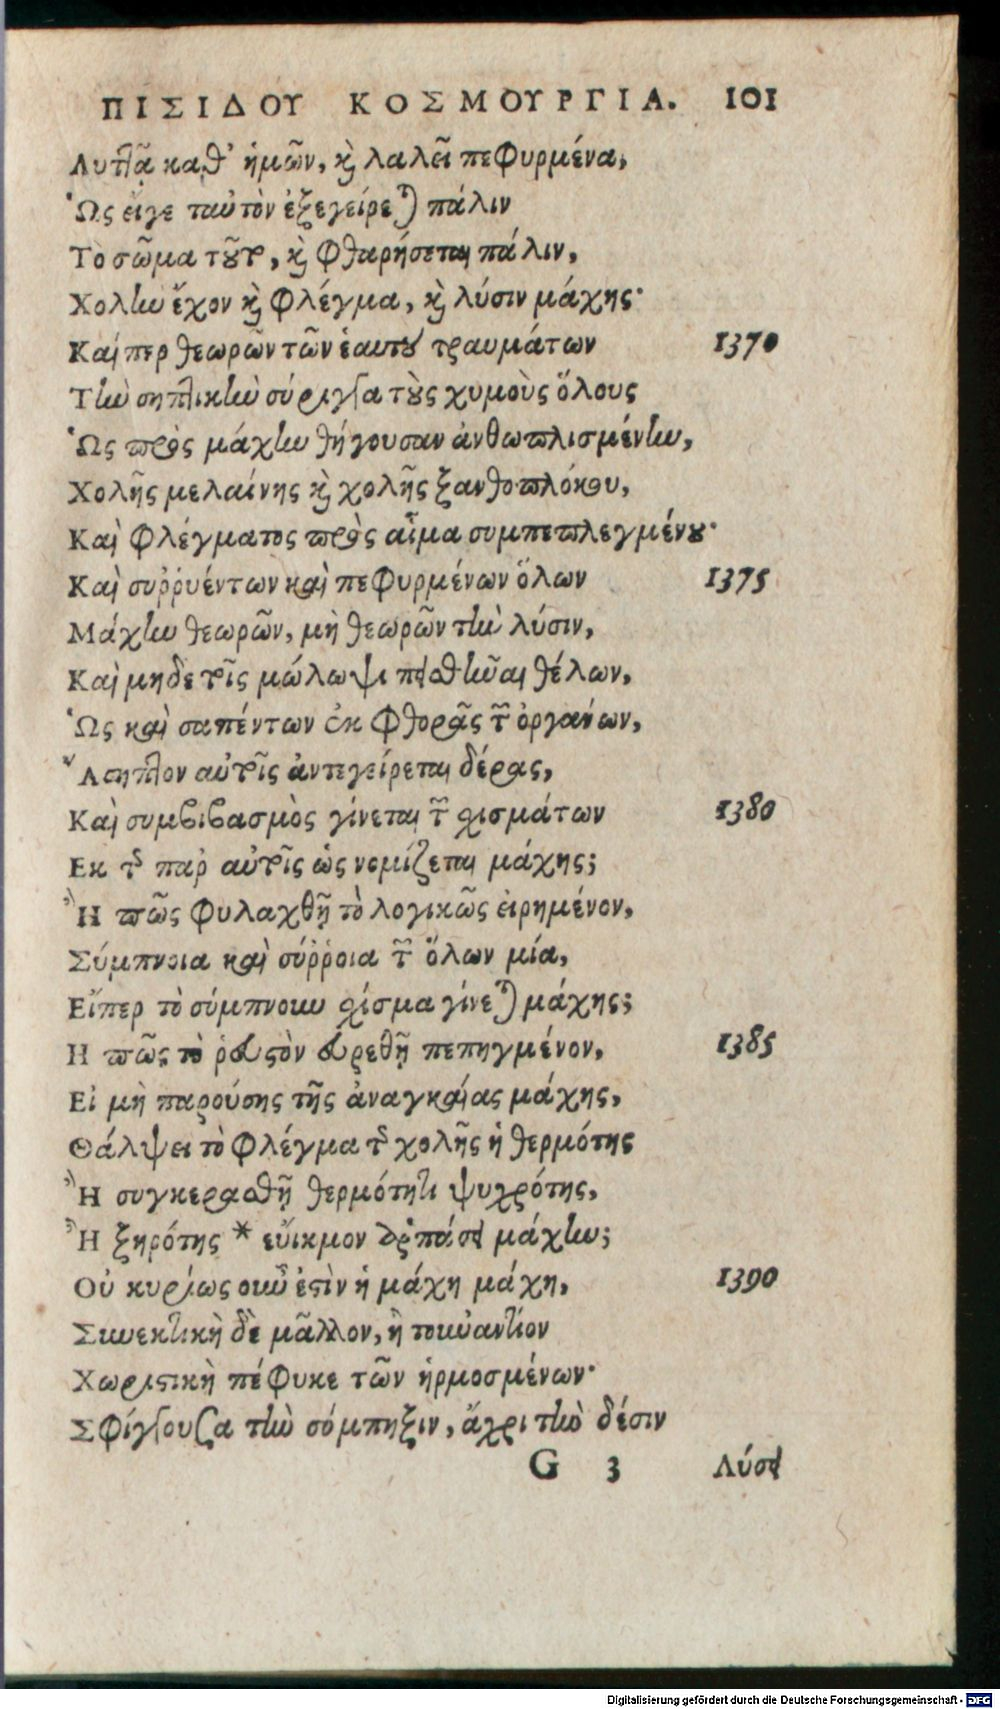 ΠΙΣΙΔΟΥ ΚΟΣΜΟΥΡΓΙΑ. 101
Λυττᾷ καθ' ἡμῶν, καὶ λαλεῖ πεφυρμένα,
Ὡς εἴγε ταὐτὸν ἐξεγείρεται πάλιν
Τὸ σῶμα τοῦτο, καὶ φθαρήσεται πάλιν,
Χολὴν ἔχον καὶ φλέγμα, καὶ λύσιν μάχης·
Καίπερ θεωρῶν τῶν ἑαυτοῦ τραυμάτων 1370
Τὴν σηπτικὴν σύριγγα τοὺς χυμοὺς ὅλους
Ὡς πρὸς μάχην θήγουσαν ἀνθωπλισμένην,
Χολῆς μελαίνης καὶ χολῆς ξανθοπλόκου,
Καὶ φλέγματος πρὸς αἷμα συμπεπλεγμένου·
Καὶ συῤῥυέντων καὶ πεφυρμένων ὅλων 1375
Μάχην θεωρῶν, μὴ θεωρῶν τὴν λύσιν,
Καὶ μηδὲ τοῖς μώλωψι πεισθῆναι θέλων,
Ὡς καὶ σαπέντων ἐκ φθορᾶς τῶν ὀργάνων,
Ἄσηπτον αὐτοῖς ἀντεγείρεται δέρας,
Καὶ συμβιβασμὸς γίνεται τῶν σχισμάτων 1380
Εκ τῆς παρ αὐτοῖς ὡς νομίζεται μάχης;
Ἢ πῶς φυλαχθῇ τὸ λογικῶς εἰρημένον,
Σύμπνοια καὶ σύῤῥοια τῶν ὅλων μία,
Εἴπερ τὸ σύμπνουν σχίσμα γίνεται μάχης;
Η πῶς τὸ ῥευστὸν εὑρεθῇ πεπηγμένον, 1385
Εἰ μὴ παρούσης τῆς ἀναγκαίας μάχης,
Θάλψει τὸ φλέγμα τῆς χολῆς ἡ θερμότης
Ἢ συγκερασθῇ θερμότητι ψυχρότης,
Ἢ ξηρότης * εὔικμον ἁρπάσει μάχην;
Οὐ κυρίως οὖν ἐστὶν ἡ μάχη μάχη, 1390
Συνεκτικὴ δὲ μᾶλλον, ἢ τοὐναντίον
Χωριστικὴ πέφυκε τῶν ἡρμοσμένων·
Σφίγγουσα τὴν σύμπηξιν, ἄχρι τὴν δέσιν
G 3 Λύσει
Digitalisierung gefördert durch die Deutsche Forschungsgemeinschaft - DFG